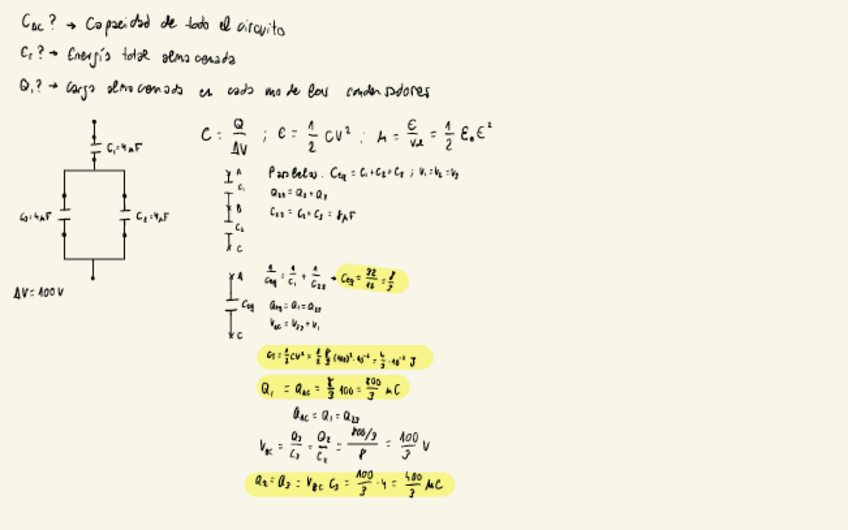 C_AC? → Capacidad de todo el circuito
E_T? → Energía total almacenada
Q_i? → Carga almacenada en cada uno de los condensadores
C = Q/ΔV ; E = 1/2 CV² ;
= 1/2 ε₀E²
C₁=4μF
C₃=4μF
C₂=4μF
ΔV=100V
A
C₁
B
C₂
C
C_eq = C₁+C₂+C₃ ; V₁=V₂=V₃
Q₂₃ = Q₂+Q₃
C₂₃ = C₂+C₃ = 8μF
A
C_eq
C
1/C_eq = 1/C₁ + 1/C₂₃ → C_eq = 32/12 = 8/3
Q_eq = Q₁ = Q₂₃
V_AC = V₂₃+V₁
= 1/2 CV² = 1/2 8/3 (100)² · 10⁻⁶ = 4/3 · 10⁻² J
Q₁ = Q_AC = 8/3 100 = 800/3 μC
Q_AC = Q₁ = Q₂₃
V_BC = Q₃/C₃ = Q₂/C₂ = 800/3 / 8 = 100/3 V
Q₂ = Q₃ = V_BC C₃ = 100/3 · 4 = 400/3 μC